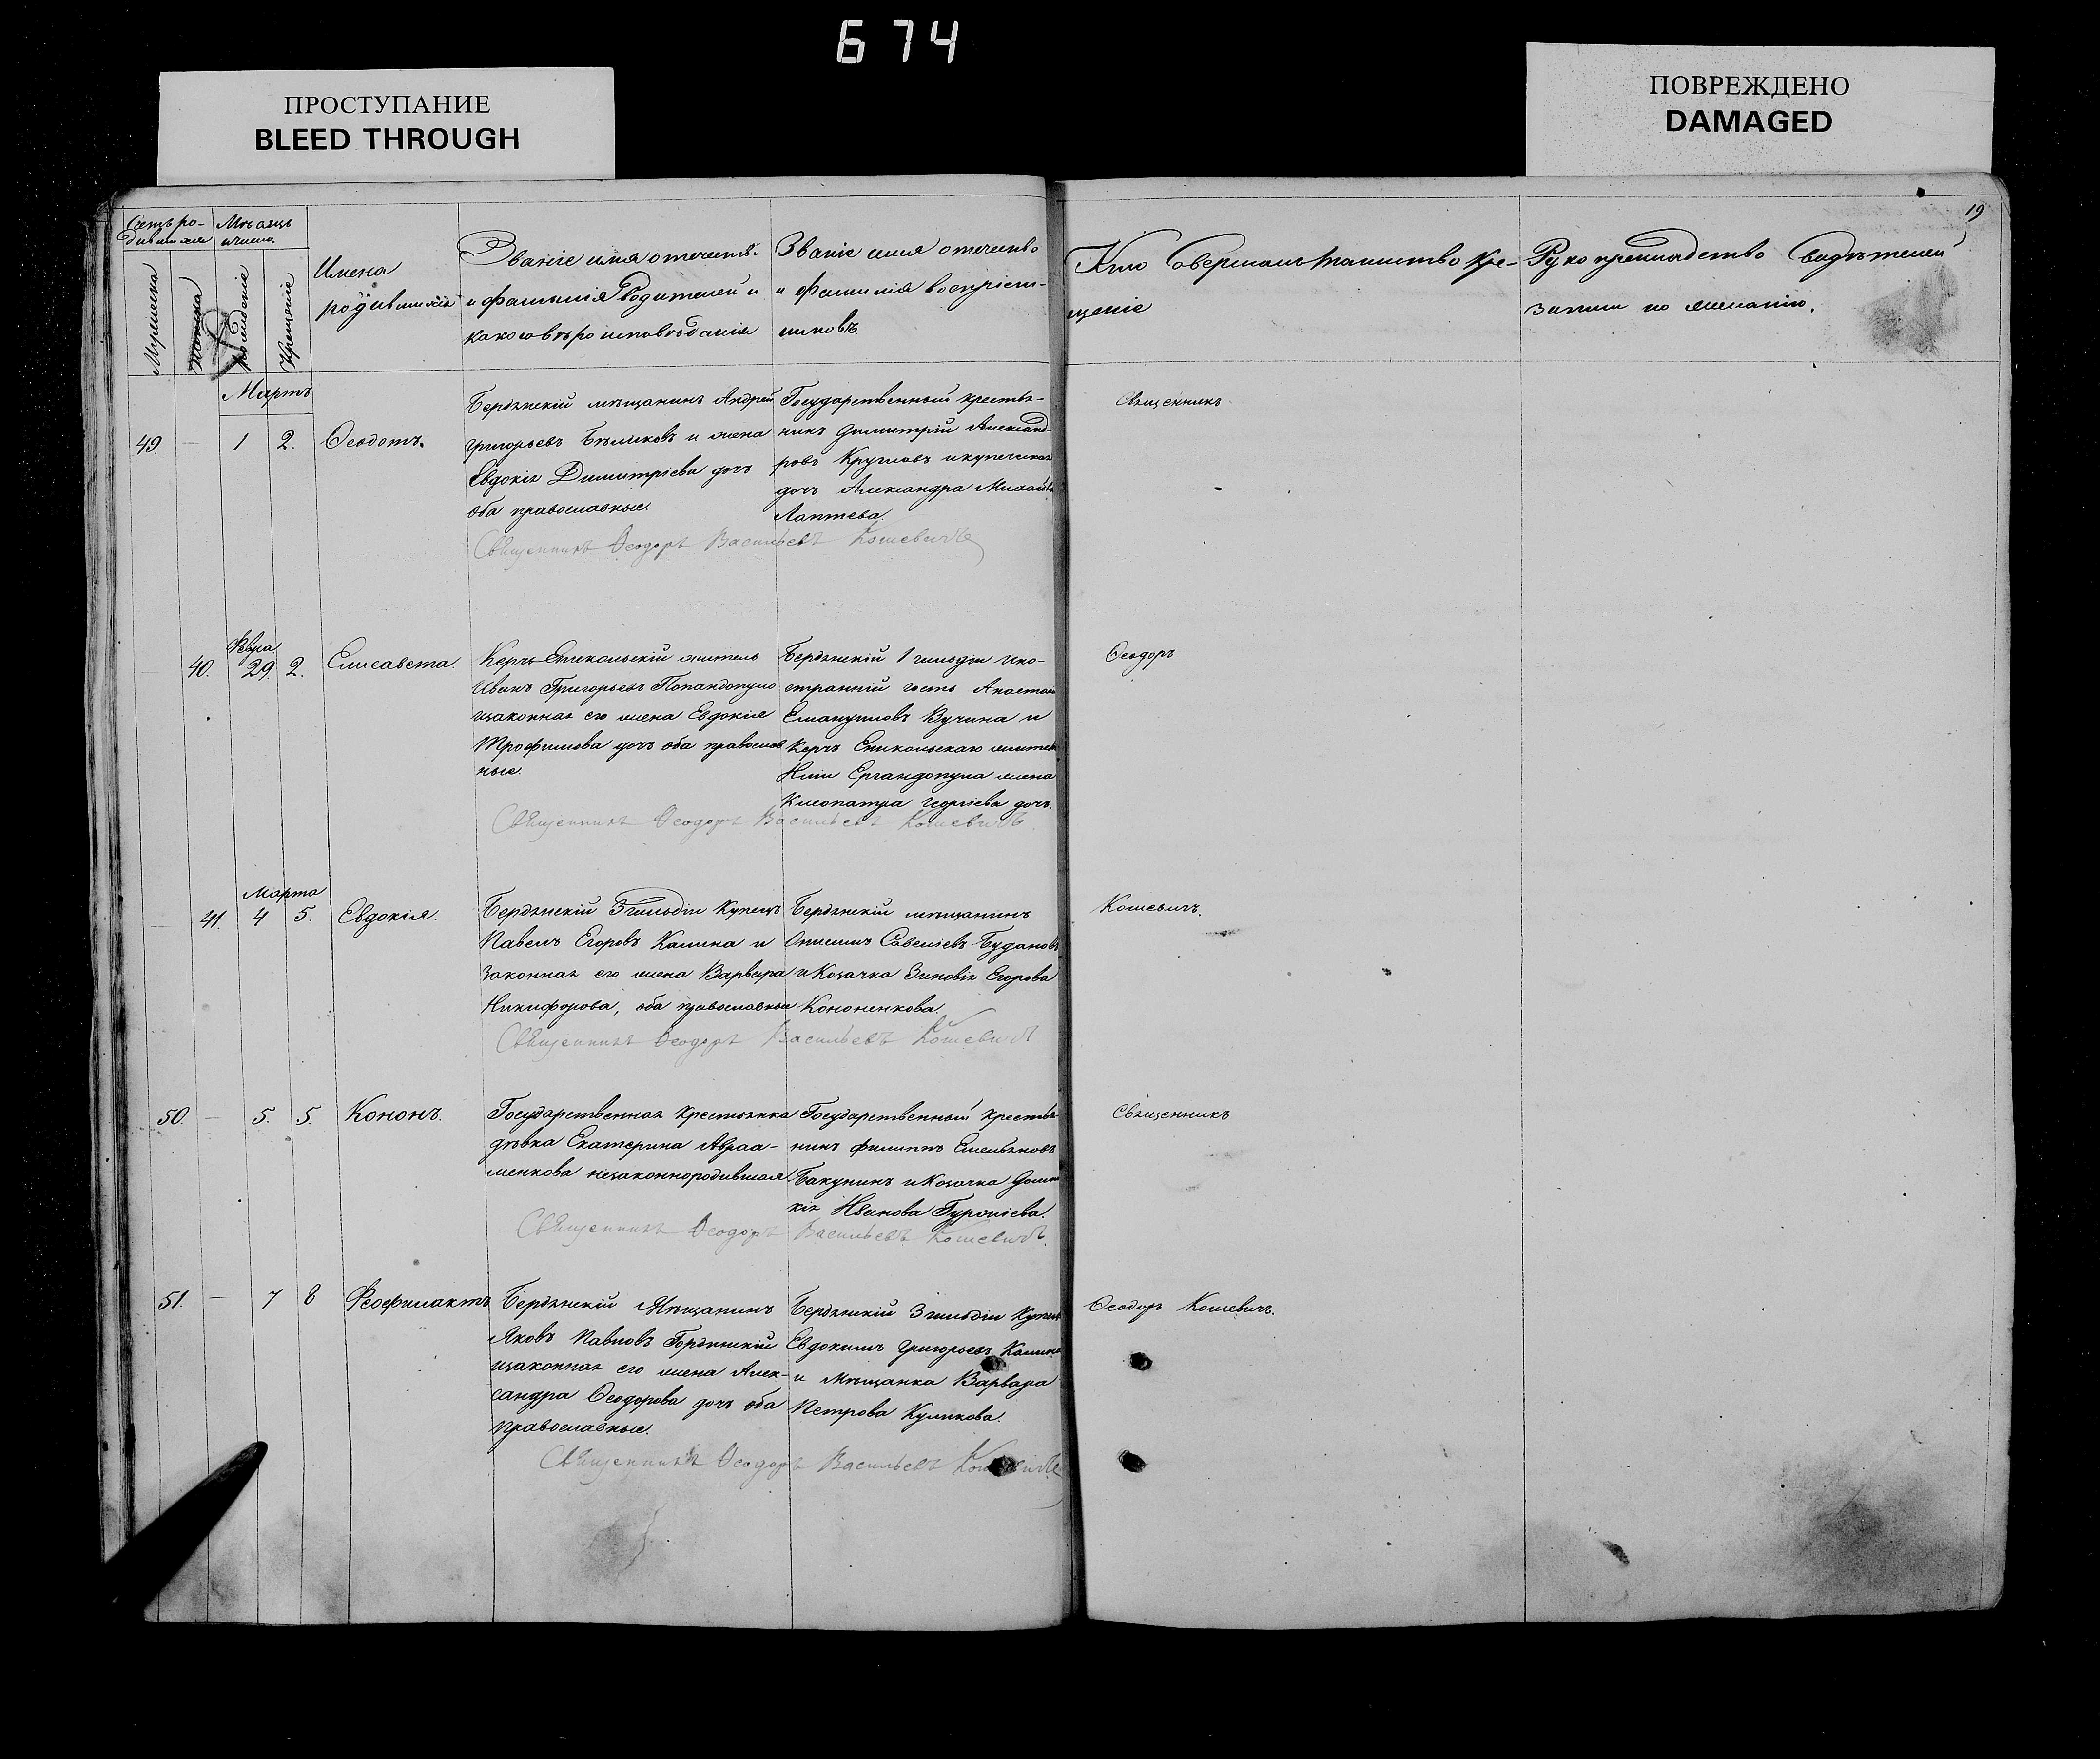 674
ПРОСТУПАНИЕ
BLEED THROUGH
ПОВРЕЖДЕНО
DAMAGED
19
Счетъ ро-
дившихся
Мѣсяцъ
и число.
Мужеска
Женска
рожденіе
Крещеніе
Имена
родившихся
Званіе имя отечеств.
и фамилія Родителей и
какого вѣроисповѣданія
Званіе имя отечество
и фамилія воспріем-
никовъ.
Кто Совершалъ таинство Кре-
щеніе
Рукоприкладство Свидѣтелей
записи по желанію.
Мартъ
49. — 1 2. Ѳеодотъ.
Бердянскій мѣщанинъ Андрей
Григорьевъ Бѣликовъ и жена
Евдокія Димитріева дочь
оба православные.
Государственный крестья-
нинъ Димитрій Александ-
ровъ Кругловъ и купеческая
дочь Александра Михайл
Лаптева.
Священникъ Ѳеодоръ Васильевъ Кошевичъ
Священникъ
Февра.
40. 29. 2. Елисавета.
Керчь-Еникольскій житель
Иванъ Григорьевъ Попандопуло
изаконная его жена Евдокія
Трофимова дочь оба православ
ные.
Бердянскій 1 гильдіи Ино-
странній гость Анастас
Емануиловъ Вучина и
Керчь Еникольскаго жител
жена
Клеопатра Георгіева дочь.
Священникъ Ѳеодоръ Васильевъ Кошевичъ
Ѳеодоръ
Марта
41. 4 5. Евдокія.
Бердянскій 3 гильдіи Купецъ
Павелъ Егоровъ Калина и
законная его жена Варвара
Никифорова, оба православные
Бердянскій мѣщанинъ
Онисимъ Савеліевъ Будановъ
и Козачка Зиновія Егорова
Кононенкова.
Священникъ Ѳеодоръ Васильевъ Кошевичъ
Кошевичъ.
50. — 5. 5. Кононъ.
Государственная крестьянка
дѣвка Екатерина Авраа-
менкова незаконнородившая.
Государственный крестья-
нинъ Филиппъ Емельяновъ
Бакунинъ и Козачка
Иванова
Священникъ Ѳеодоръ Васильевъ Кошевичъ.
Священникъ
51. — 7 8 Феофилактъ
Бердянскій Мѣщанинъ
Яковъ Павловъ
изаконная его жена Алек-
сандра Ѳеодорова дочь оба
православные.
Бердянскій 3 гильдіи Купец
Евдокимъ Григорьевъ Калина
и мѣщанка Варвара
Петрова Куликова.
Священникъ Ѳеодоръ Васильевъ Кошевичъ
Ѳеодоръ Кошевичъ.